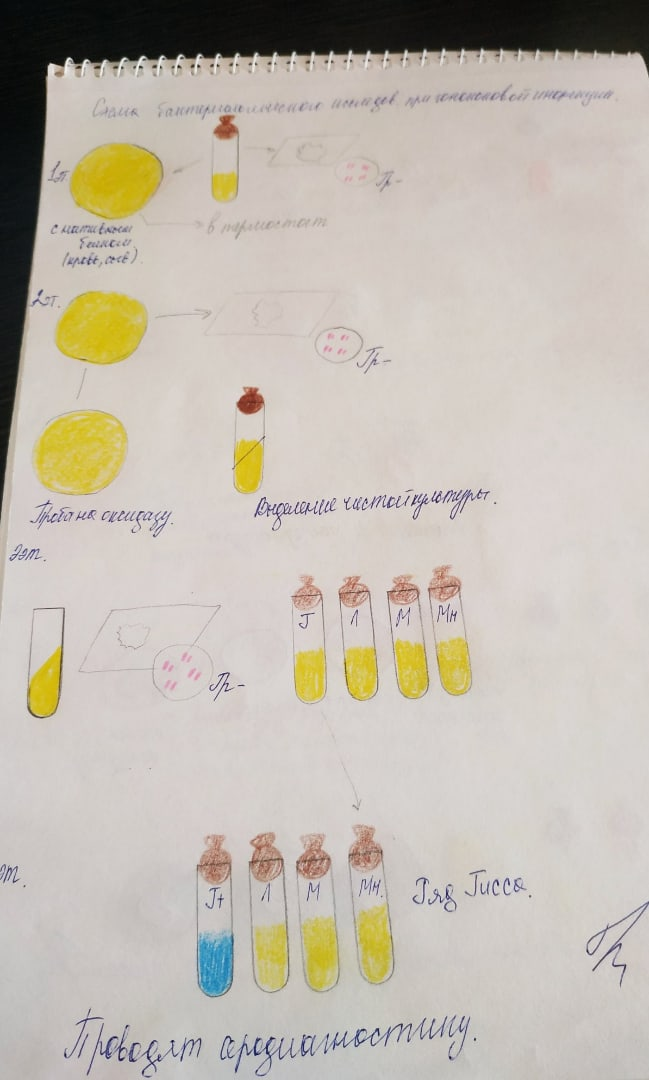 Схема бактериологического исследов. при гонококовой инфекции.
1эт.
Гр-
с нативным
белком
(кровь, сыв).
в термостат
2эт.
Гр-
Проба на оксидазу.
Выделение чистой культуры.
3эт.
Гр-
Г Л М Мн
эт.
Г+ Л М Мн.
Ряд Гисса.
Проводят серодиагностику.